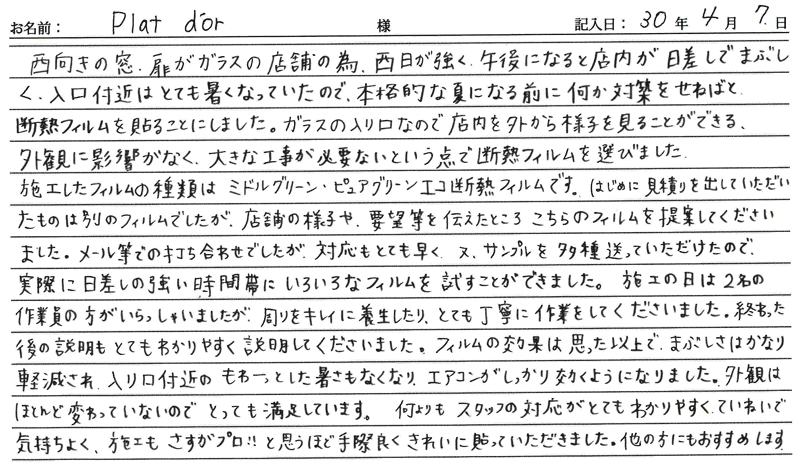 お名前： Plat d'or 様 記入日：30年4月7日
西向きの窓、扉がガラスの店舗の為、西日が強く、午後になると店内が日差しでまぶし
く、入口付近はとても暑くなっていたので、本格的な夏になる前に何か対築をせねばと、
断熱フィルムを貼ることにしました。ガラスの入り口なので店内を外から様子を見ることができる、
外観に影響がなく、大きな工事が必要ないという点で断熱フィルムを選びました。
施工したフィルムの種類は ミドルグリーン・ピュアグリーンエコ断熱フィルムです。はじめに見積りを出していただい
たものは別のフィルムでしたが、店舗の様子や、要望等を伝えたところ こちらのフィルムを提案してください
ました。メール等での打ち合わせでしたが、対応もとても早く、又、サンプルを多種送っていただけたので、
実際に日差しの強い時間帯にいろいろなフィルムを試すことができました。 施工の日は2名の
作業員の方がいらっしゃいましたが、周りをキレイに養生したり、とても丁寧に作業をしてくださいました。終わった
後の説明もとてもわかりやすく説明してくださいました。フィルムの効果は思った以上で、まぶしさはかなり
軽減され、入り口付近のもわーっとした暑さもなくなり、エアコンがしっかり効くようになりました。外観は
ほとんど変わっていないのでとっても満足しています。 何よりもスタッフの対応がとてもわかりやすく、ていねいで
気持ちよく、施工もさすがプロ!!と思うほど手際良くきれいに貼っていただきました。他の方にもおすすめします